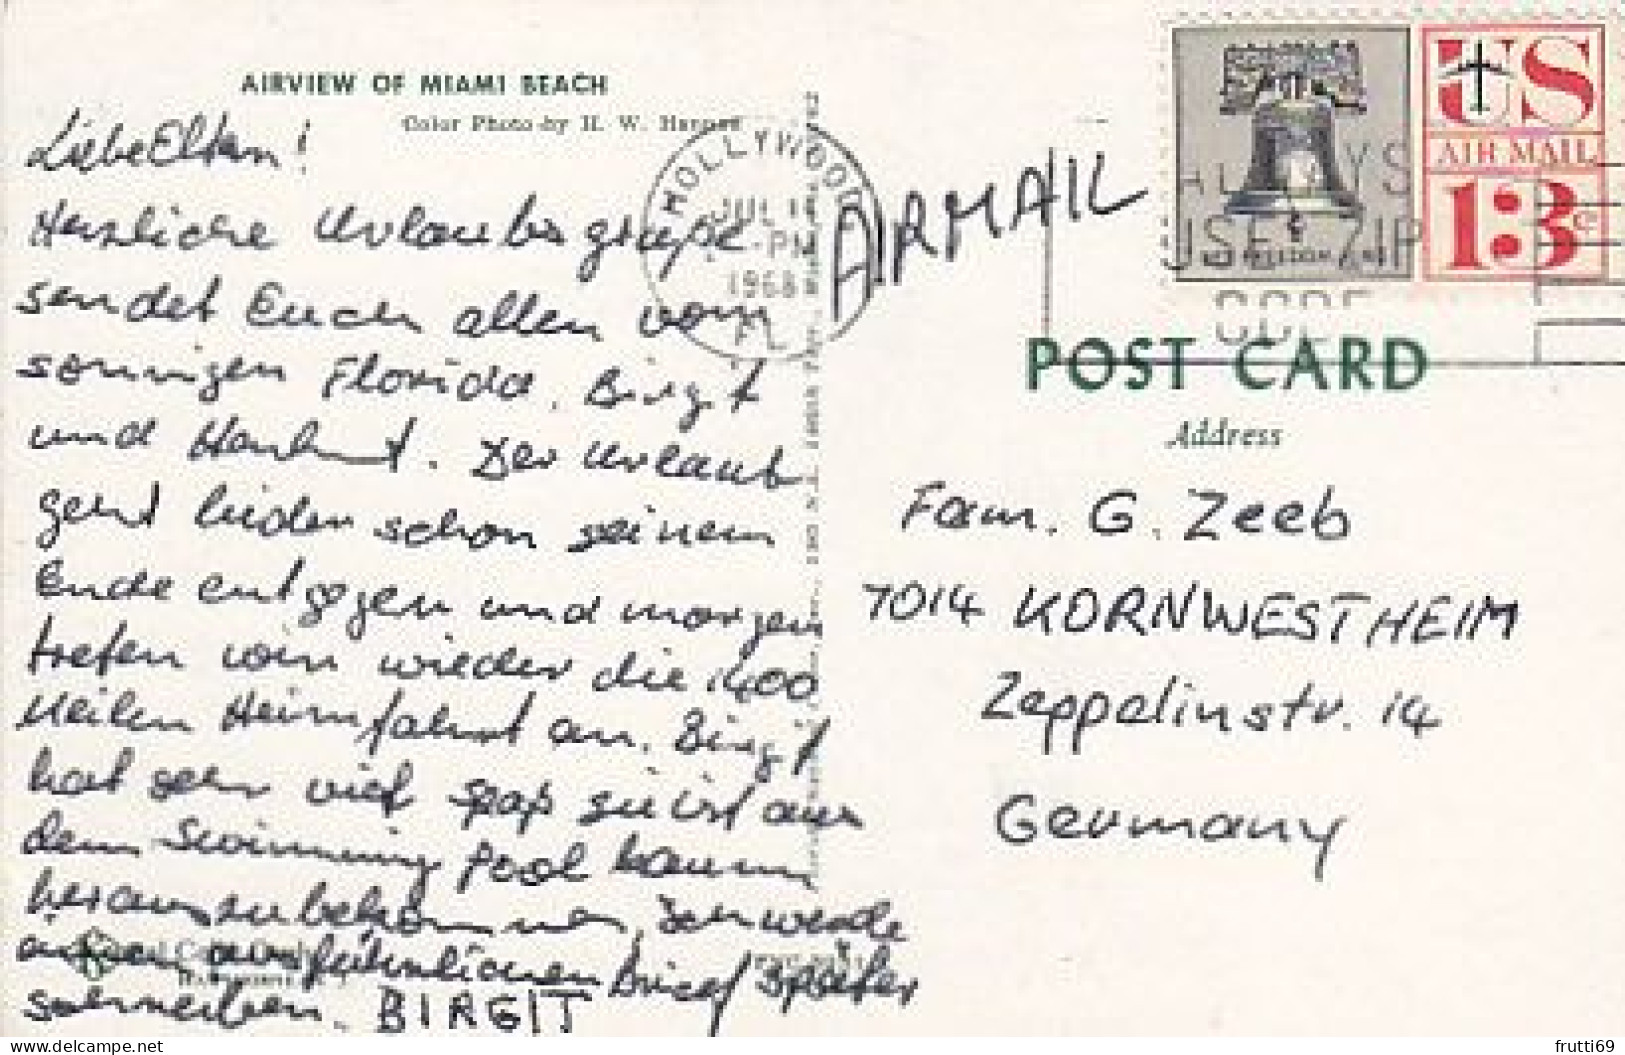 AIRVIEW OF MIAMI BEACH
Color Photo by H. W. Hannau
Liebe Eltern!
Herzliche Urlaubsgrüße
sendet Euch allen vom
sonnigen Florida. Birgit
und Hanhart. Der Urlaub
geht leider schon seinem
Ende entgegen und morgen
treten wir wieder die 1400
Meilen Heimfahrt an. Birgit
hat sehr viel Spaß sie ist aus
dem Swimming Pool kaum
herauszubekommen, Ich werde
einen ausführlichen Brief später
schreiben. BIRGIT
HOLLYWOOD
JUL
PM
1968
FL
AIRMAIL
ALWAYS
USE ZIP
CODE
US
AIR MAIL
13c
POST CARD
Address
Fam. G. Zeeb
7014 KORNWESTHEIM
Zeppelinstr. 14
Germany
https://www.delcampe.net
frutti69